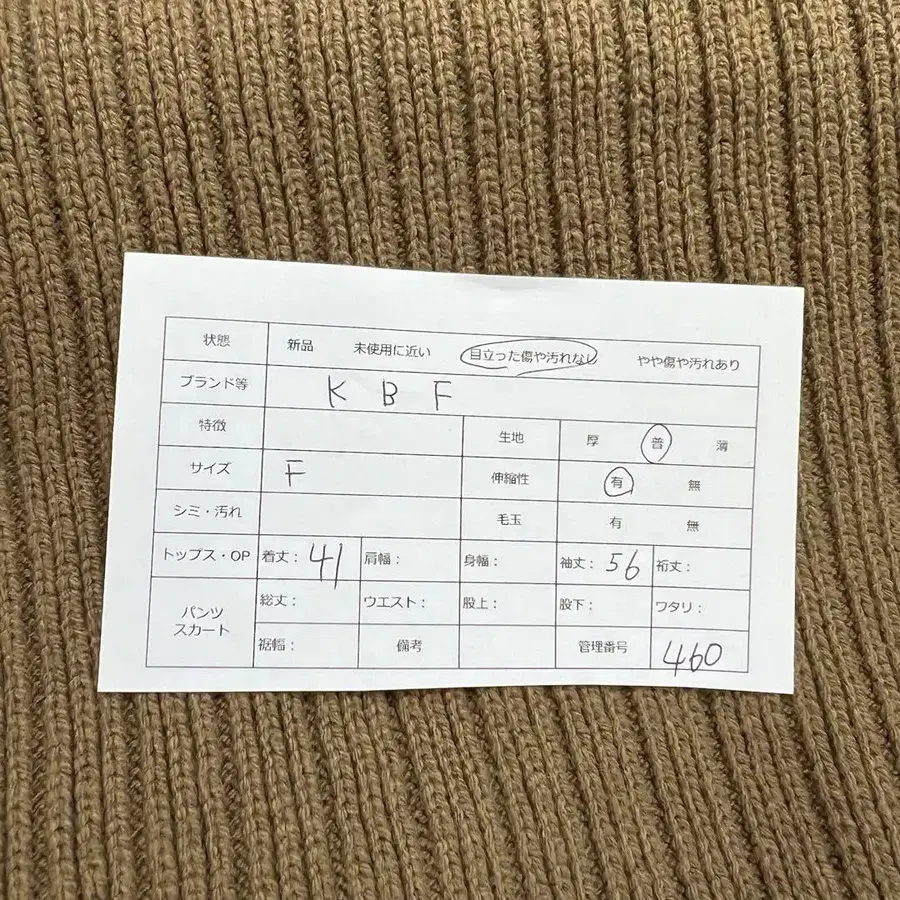 状態 新品 未使用に近い 目立った傷や汚れなし やや傷や汚れあり
ブランド等 KBF
特徴 生地 厚 普 薄
サイズ F 伸縮性 有 無
シミ・汚れ 毛玉 有 無
トップス・OP 着丈: 41 肩幅: 身幅: 袖丈: 56 裄丈:
パンツ スカート 総丈: ウエスト: 股上: 股下: ワタリ:
裾幅: 備考 管理番号 460